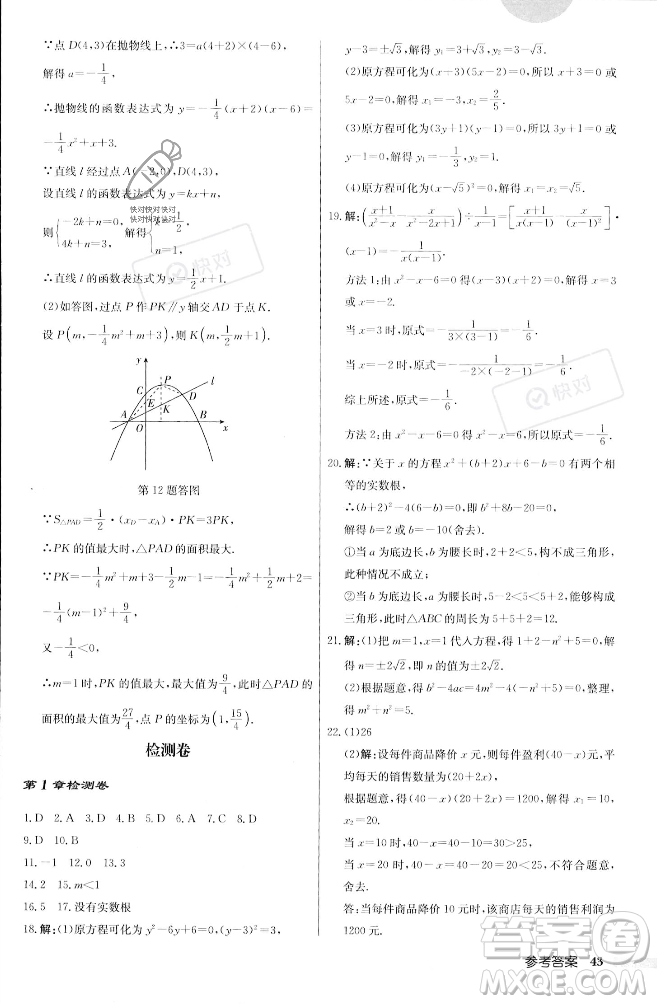 ∵点 D(4,3)在抛物线上,∴3=a(4+2)×(4-6),
解得 a=-1/4,
∴抛物线的函数表达式为 y=-1/4(x+2)(x-6)=
-1/4x²+x+3.
∵直线 l 经过点 A(-2,0),D(4,3),
设直线 l 的函数表达式为 y=kx+n,
则{-2k+n=0, 4k+n=3, 解得{k=1/2, n=1,
∴直线 l 的函数表达式为 y=1/2x+1.
(2)如答图,过点 P 作 PK∥y 轴交 AD 于点 K.
设 P(m,-1/4m²+m+3),则 K(m,1/2m+1).
y
P
l
C
D
E
K
A
O
B
x
第 12 题答图
∵S△PAD=1/2·(xD-xA)·PK=3PK,
∴PK 的值最大时,△PAD 的面积最大.
∵PK=-1/4m²+m+3-1/2m-1=-1/4m²+1/2m+2
=-1/4(m-1)²+9/4,
又-1/4<0,
∴m=1 时,PK 的值最大,最大值为9/4,此时△PAD 的
面积的最大值为27/4,点 P 的坐标为(1,15/4).
检测卷
第 1 章检测卷
1.D 2.A 3.A 4.C 5.D 6.A 7.B 8.D
9.D 10.B
11.-1 12.0 13.3
14.2 15.m<1
16.5 17.没有实数根
18.解:(1)原方程可化为 y²-6y+6=0,(y-3)²=3,
y-3=±√3,解得 y₁=3+√3,y₂=3-√3.
(2)原方程可化为(x-3)(5x-2)=0,所以 x-3=0 或
5x-2=0,解得 x₁=3,x₂=2/5.
(3)原方程可化为(3y+1)(y-1)=0,所以 3y+1=0 或
y-1=0,解得 y₁=-1/3,y₂=1.
(4)原方程可化为(x-√5)²=0,解得 x₁=x₂=√5.
19.解:(x+1/x²-x - x/x²-2x+1)÷1/x=[x+1/x(x-1) - x/(x-1)²]·
(x-1)=-1/x(x-1).
方法 1:由 x²-x-6=0,解得 x₁=3,x₂=-2.
当 x=3 时,原式=-1/3×(3-1)=-1/6.
当 x=-2 时,原式=-1/-2×(-2-1)=-1/6.
综上所述,原式=-1/6.
方法 2:由 x²-x-6=0,得 x²-x=6,∴原式=-1/6.
20.解:∵关于 x 的方程 x²+(b+2)x+6-b=0 有两个相
等的实数根,
∴(b+2)²-4(6-b)=0,即 b²+8b-20=0,
解得 b=2 或 b=-10(舍去).
①当 a 为底边长,b 为腰长时,2+2<5,不能构成三角形,
此种情况不成立;
②当 b 为底边长,a 为腰长时,5-2<5<5+2,能够构成
三角形,此时△ABC 的周长为 5+5+2=12.
21.解:(1)把 m=1,x=1 代入方程,得 1+2-n²+5=0,
解得 n=±2√2,即 n 的值为±2√2.
(2)根据题意,得 b²-4ac=4m²-4(-n²+5)=0,整理,
得 m²+n²=5.
22.(1)26
(2)解:设每件商品降价 x 元,则每件盈利(40-x)元,
平均每天的销售数量为(20+2x)件.
根据题意,得(40-x)(20+2x)=1200,解得 x₁=10,
x₂=20.
当 x=10 时,40-x=40-10=30>25,符合题意;
当 x=20 时,40-x=40-20=20<25,不符合题意,
舍去.
答:当每件商品降价 10 元时,该商店每天销售利润为
1200 元.
快对快对快对
快对快对快对
快对
快对
答案圈
MXQE.COM
参考答案 43